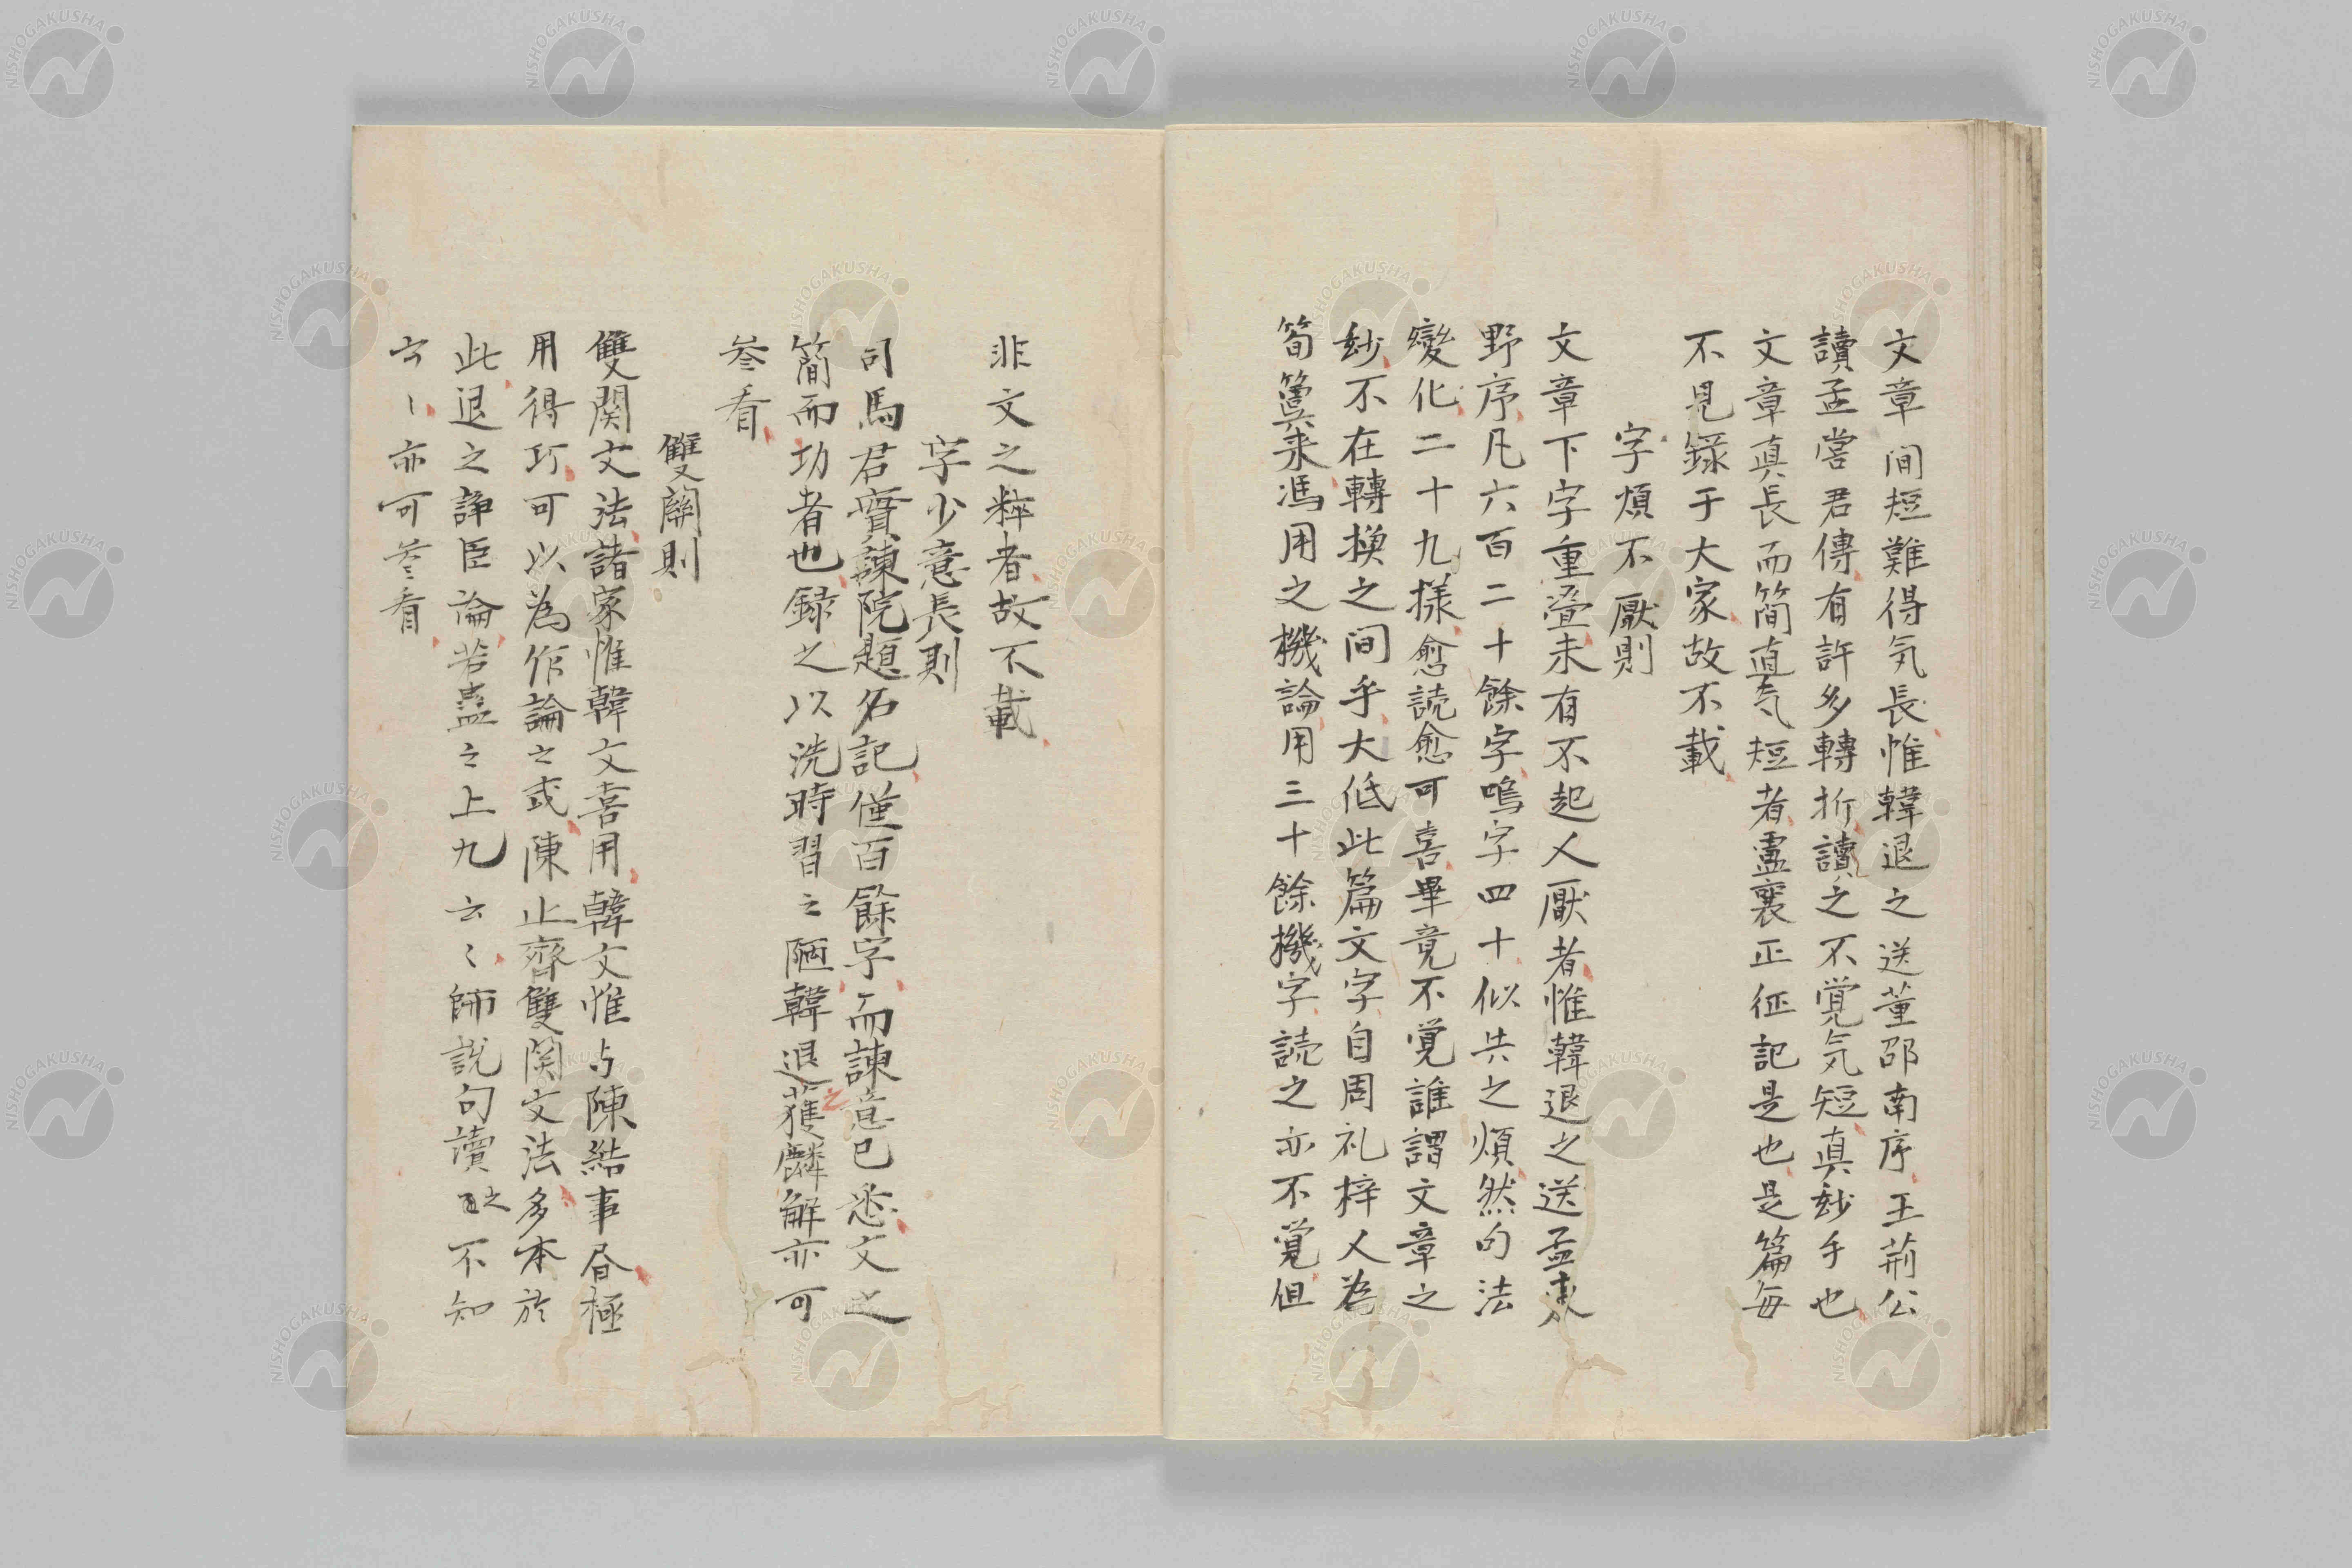 文章間短難得気長惟韓退之送董邵南序王荊公
讀孟嘗君傳有許多轉折讀之不覚気短真玅手也
文章真長而簡直气短者盧襄正征記是也是篇每
不見録于大家故不載
字煩不厭則
文章下字重疊未有不起人厭者惟韓退之送孟東
野序凡六百二十餘字鳴字四十似共之煩然句法
變化二十九樣愈読愈可喜畢竟不覚誰謂文章之
玅不在轉換之间乎大低此篇文字自周礼梓人為
筍簨来馮用之機論用三十餘機字読之亦不覚但
非文之粹者故不載
字少意長則
司馬君實諫院題名記僅百餘字而諫意已悉文之
簡而功者也録之以洗時習之陋韓退之獲麟解亦可
参看
雙關則
雙関文法諸家惟韓文喜用韓文惟与陳給事昏極
用得巧可以為作論之式陳止齊雙関文法多本於
此退之諍臣論若蠱之上九云〻師説句讀之不知
云〻亦可参看
NISHOGAKUSHA